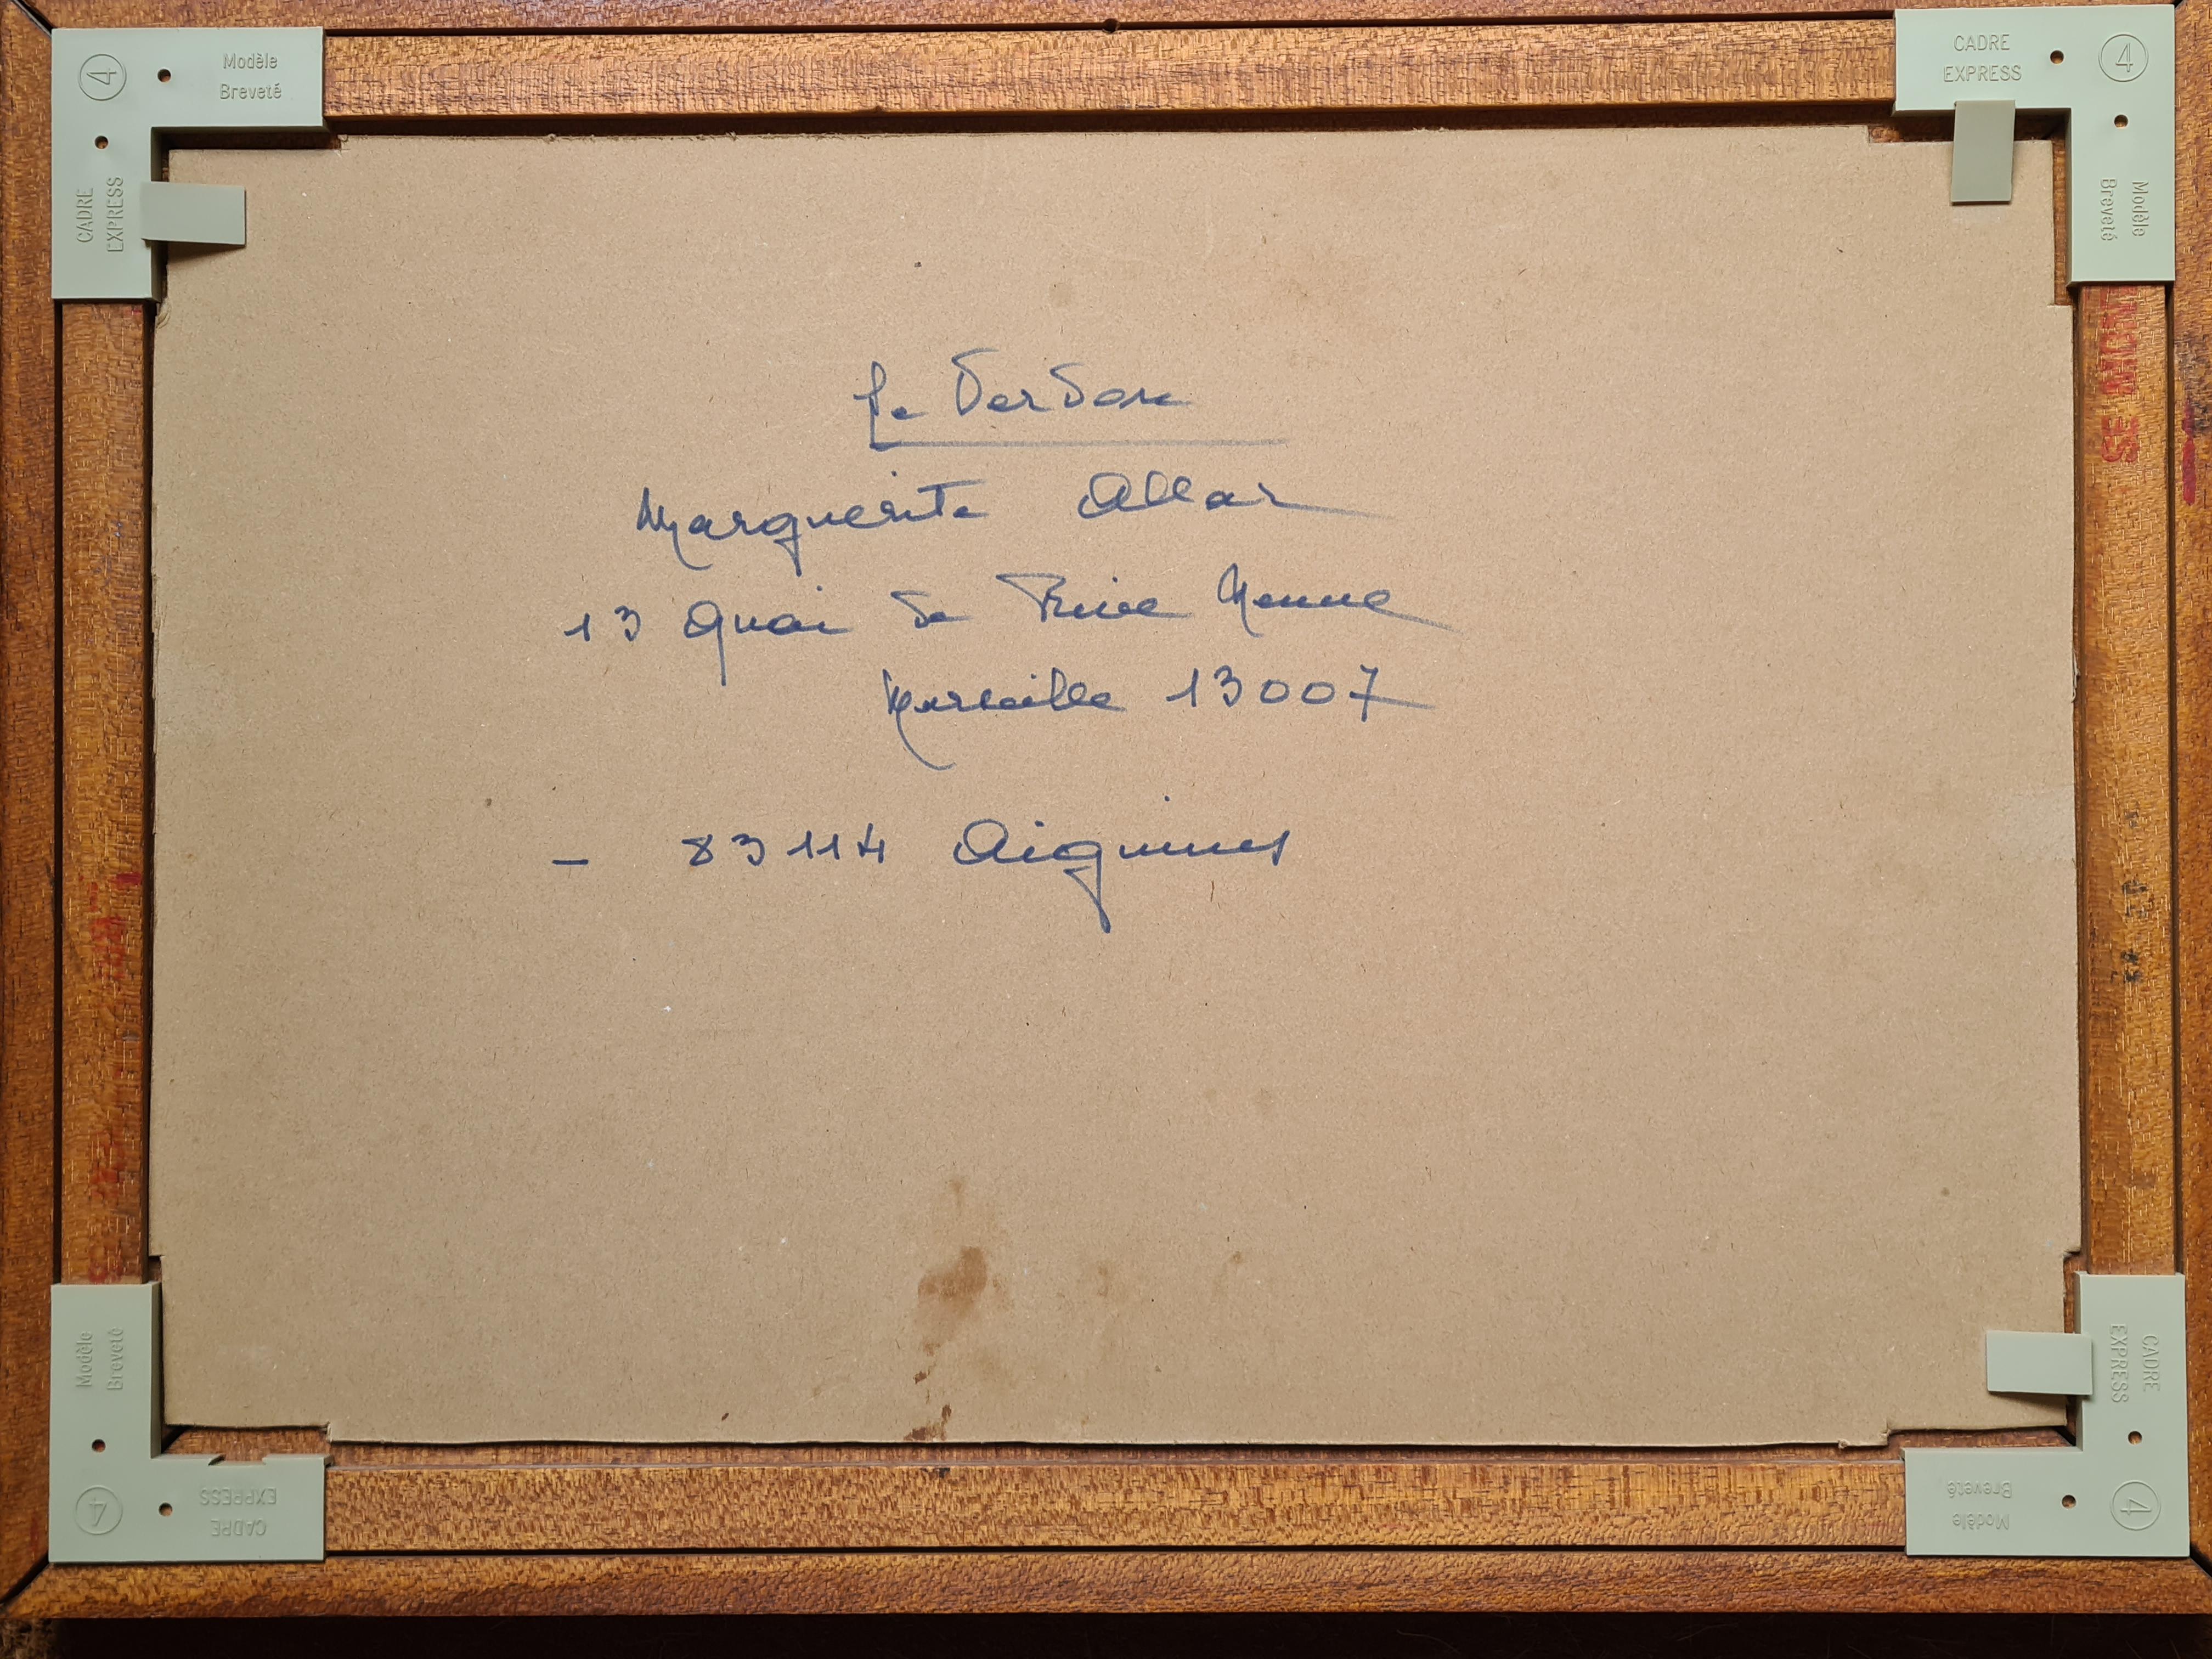 Modèle
Breveté
4
CADRE
EXPRESS
CADRE
EXPRESS
4
Modèle
Breveté
Le Verdon
Marguerite Allar
13 Quai de Rive Neuve
Marseille 13007
- 83114 Aiguines
Modèle
Breveté
4
CADRE
EXPRESS
CADRE
EXPRESS
4
Modèle
Breveté